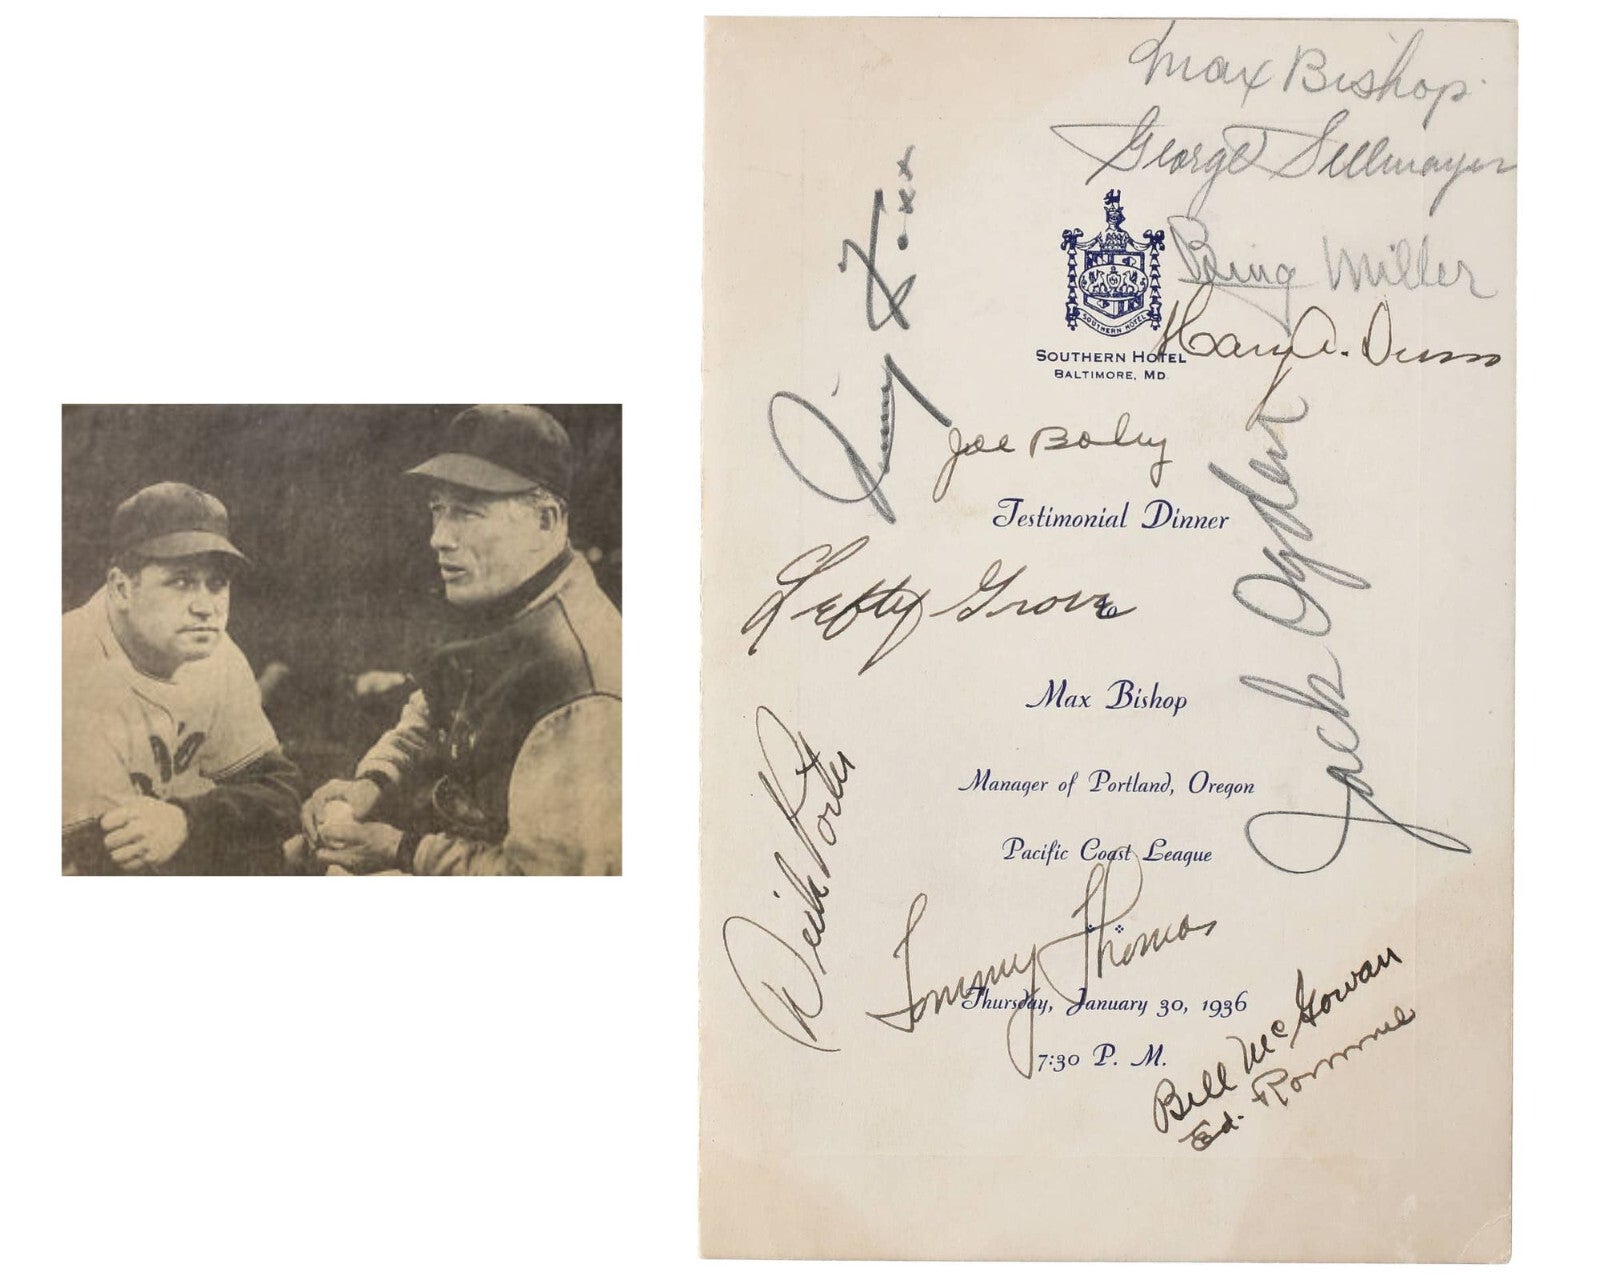 Max Bishop
George Sellmayer
Bing Miller
Harry A. Dunn
SOUTHERN HOTEL
SOUTHERN HOTEL
BALTIMORE, MD.
Jimmy Foxx
Joe Boley
Testimonial Dinner
Jack Ogden
Lefty Grove
Max Bishop
Manager of Portland, Oregon
Pacific Coast League
Dick Porter
Tommy Thomas
Thursday, January 30, 1936
7:30 P. M.
Bill McGowan
Ed. Rommel